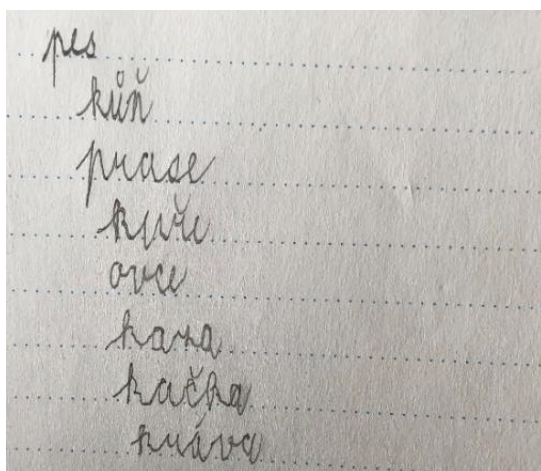 pes
kůň
prase
kuře
ovce
koza
kačka
kráva